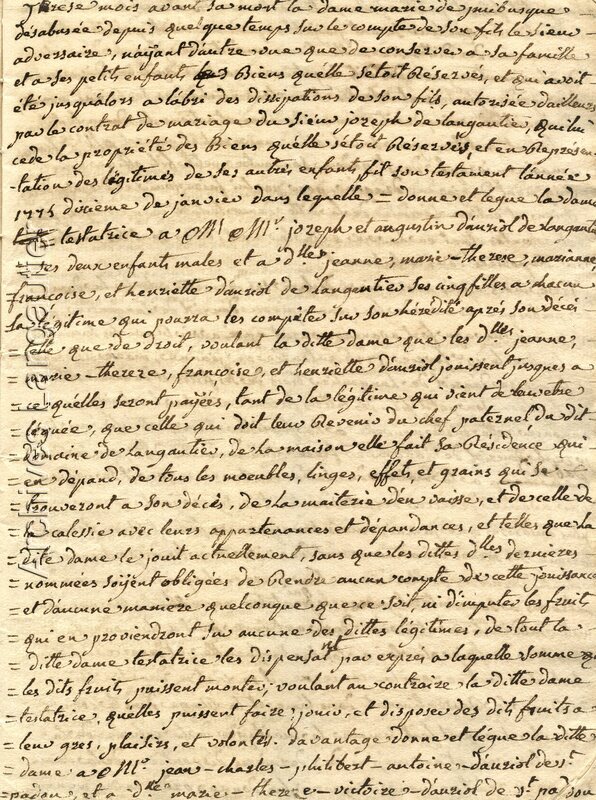 Therese mois avant sa mort la dame marie de
désabusée depuis quelque temps sur le compte de son fils le sieur
adversaire, n'ayant d'autre vue que de conserver a sa famille
et a ses petits enfants les Biens quelle setoit Reservés, et qui avoit
été jusqu'alors a labri des dissipations de son fils, autorisée dailleurs
par le contrat de mariage du sieur joseph de langautier, qui lui
cede la propriété des Biens quelle setoit Reservés, et en Représen
-tation des légitimes de ses autres enfants, fit son testament lannée
1775 dixieme de janvier dans lequelle = donne et legue la dame
testatrice a Mr Mr. joseph et augustin dauriol de langautier
ses deux enfants males et a dlles jeanne, marie-therese, marianne,
francoise, et henriette dauriol de langautier ses cinq filles a chacun
la légitime qui pourra les compéter sur son hérédité aprés son décés
telle que de droit, voulant la ditte dame que les dlles jeanne,
= marie-therese, francoise, et henriette dauriol jouissent jusques a
= ce quelles seront payées, tant de la légitime qui vient de leur etre
= léguée, que celle qui doit leur Revenir du chef paternel, du dit
= domaine de langautier, de la maison elle fait sa Résidence, qui
= en dépand, de tous les moeubles, linges, effets, et grains qui se
= trouveront a son décés, de la maiterie d'en vaisse, et de celle de
= la calessie avec leurs appartenances et dépandances, et telles que la
= dite dame le jouit actuellement, sans que les dittes dlles dernieres
= nommées soijent obligées de Rendre aucun compte de cette jouissance
= et daucune maniere quelconque que ce soit, ni dimputer les fruits
= qui en proviendront sur aucune des dittes légitimes, de tout la
= ditte dame testatrice les dispensant par exprés a laquelle somme que
= les dits fruits puissent monter, voulant au contraire la ditte dame
= testatrice, quelles puissent faire, jouir, et disposer des dits fruits a
= leur gres, plaisirs, et volontés. davantage donne et legue la ditte
= dame a Mr. jean-charles-philibert antoine dauriol de st.
= padou, et a dlle marie-therese-victoire dauriol de st. padou son